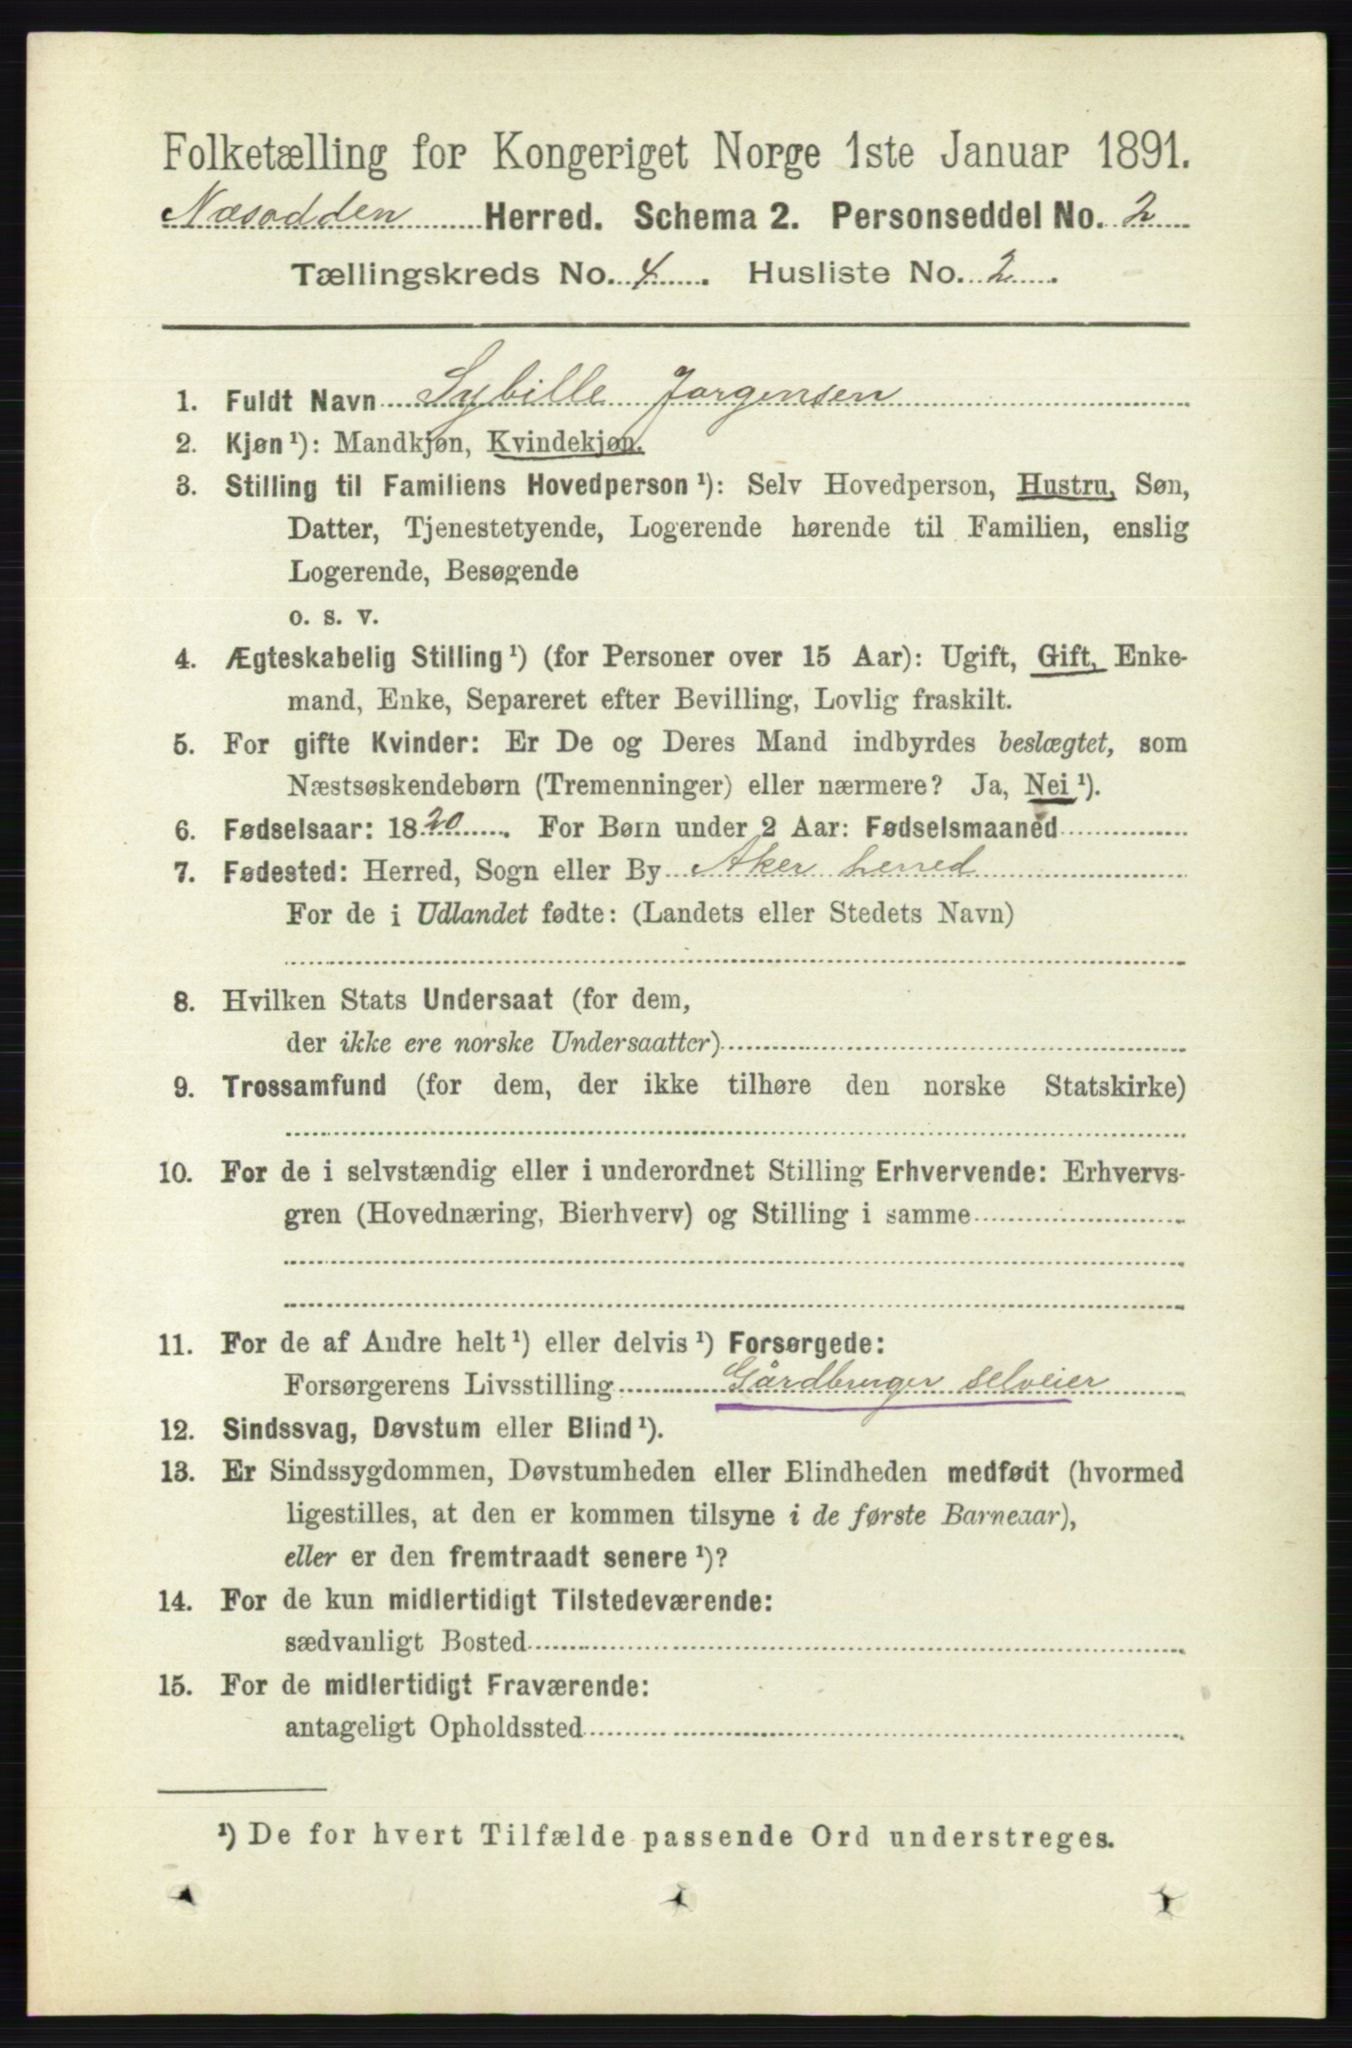 Folketælling for Kongeriget Norge 1ste Januar 1891.
Næsodden Herred. Schema 2. Personseddel No. 2
Tællingskreds No. 4. Husliste No. 2.
1. Fuldt Navn Sybille Jorgensen
2. Kjøn¹): Mandkjøn, Kvindekjøn.
3. Stilling til Familiens Hovedperson¹): Selv Hovedperson, Hustru, Søn,
Datter, Tjenestetyende, Logerende hørende til Familien, enslig
Logerende, Besøgende
o. s. v.
4. Ægteskabelig Stilling¹) (for Personer over 15 Aar): Ugift, Gift, Enke-
mand, Enke, Separeret efter Bevilling, Lovlig fraskilt.
5. For gifte Kvinder: Er De og Deres Mand indbyrdes beslægtet, som
Næstsøskendebørn (Tremenninger) eller nærmere? Ja, Nei¹).
6. Fødselsaar: 1820. For Børn under 2 Aar: Fødselsmaaned
7. Fødested: Herred, Sogn eller By Aker herred
For de i Udlandet fødte: (Landets eller Stedets Navn)
8. Hvilken Stats Undersaat (for dem,
der ikke ere norske Undersaatter)
9. Trossamfund (for dem, der ikke tilhøre den norske Statskirke)
10. For de i selvstændig eller i underordnet Stilling Erhvervende: Erhvervs-
gren (Hovednæring, Bierhverv) og Stilling i samme
11. For de af Andre helt¹) eller delvis¹) Forsørgede:
Forsørgerens Livsstilling Gårdbruger selveier
12. Sindssvag, Døvstum eller Blind¹).
13. Er Sindssygdommen, Døvstumheden eller Blindheden medfødt (hvormed
ligestilles, at den er kommen tilsyne i de første Barneaar),
eller er den fremtraadt senere¹)?
14. For de kun midlertidigt Tilstedeværende:
sædvanligt Bosted
15. For de midlertidigt Fraværende:
antageligt Opholdssted
¹) De for hvert Tilfælde passende Ord understreges.